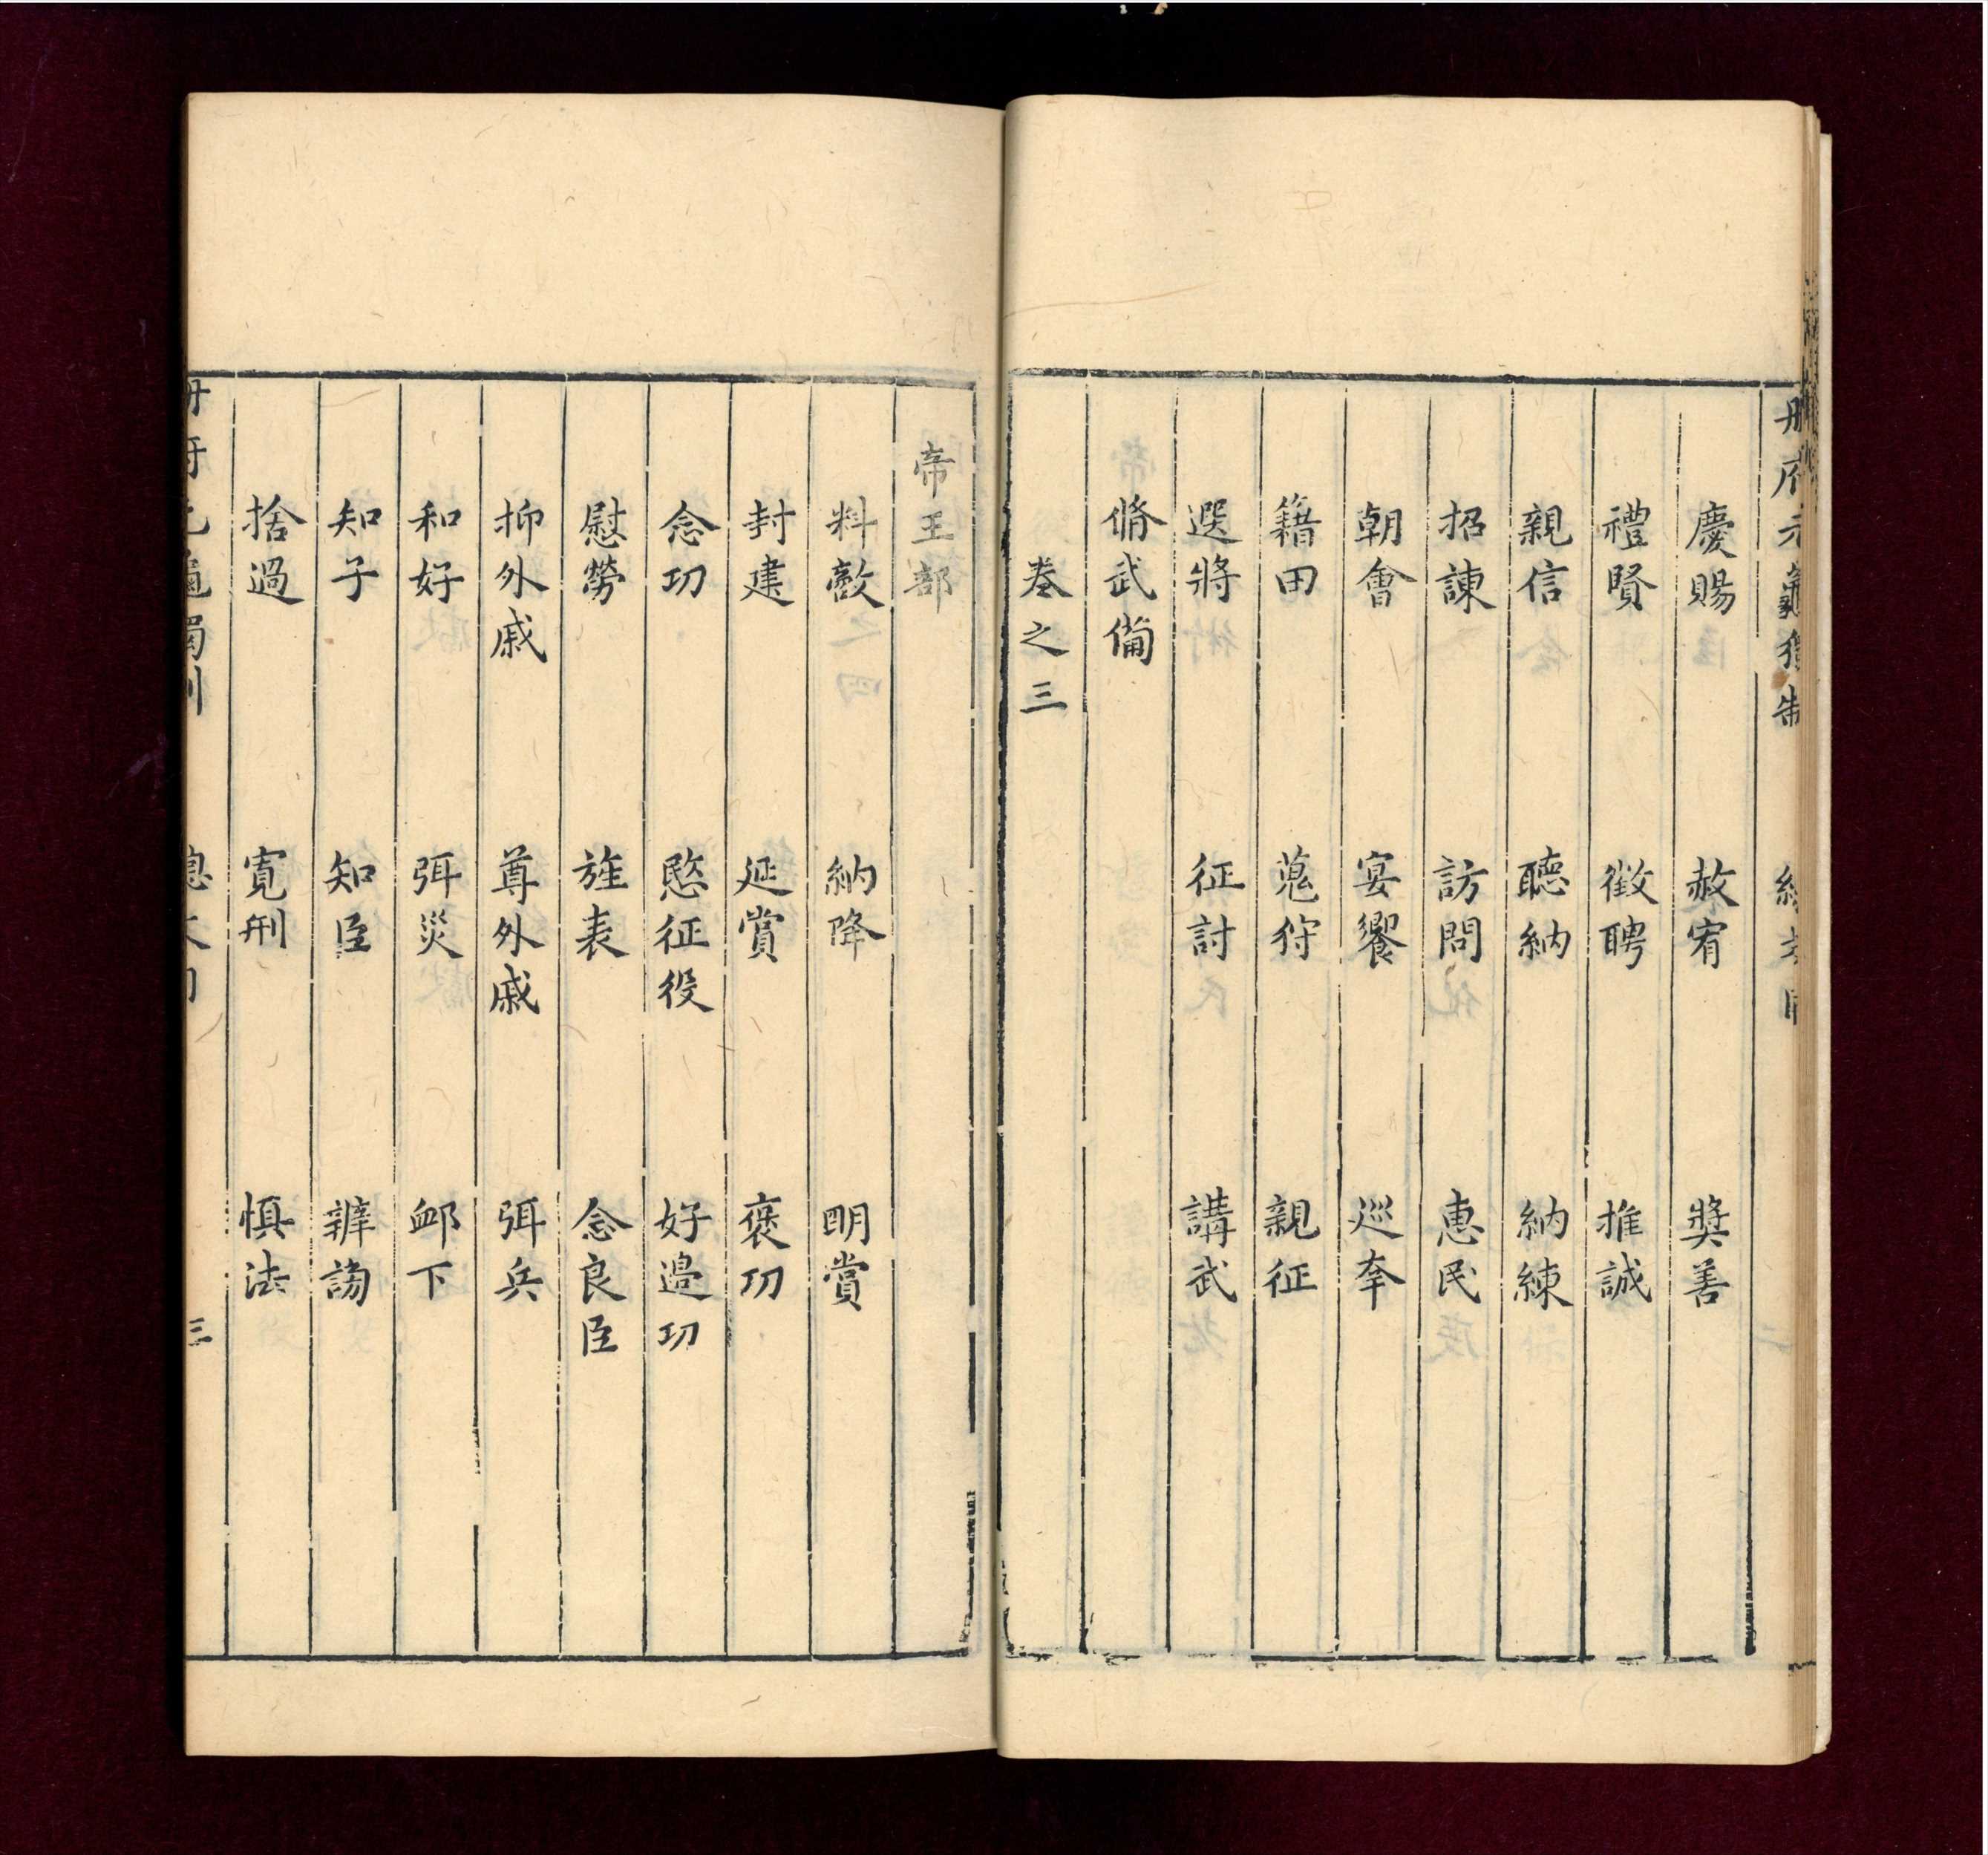 慶賜 赦宥 奬善
禮賢 徵聘 推誠
親信 聽納 納練
招諫 訪問 惠民
朝會 宴饗 巡幸
籍田 蒐狩 親征
選將 征討 講武
脩武備
卷之三
帝王部
料敵 納降 明賞
封建 延賞 褒功
念功 愍征役 好邊功
慰勞 旌表 念良臣
抑外戚 尊外戚 弭兵
和好 弭災 卹下
知子 知臣 辨謗
捨過 寬刑 慎法
三